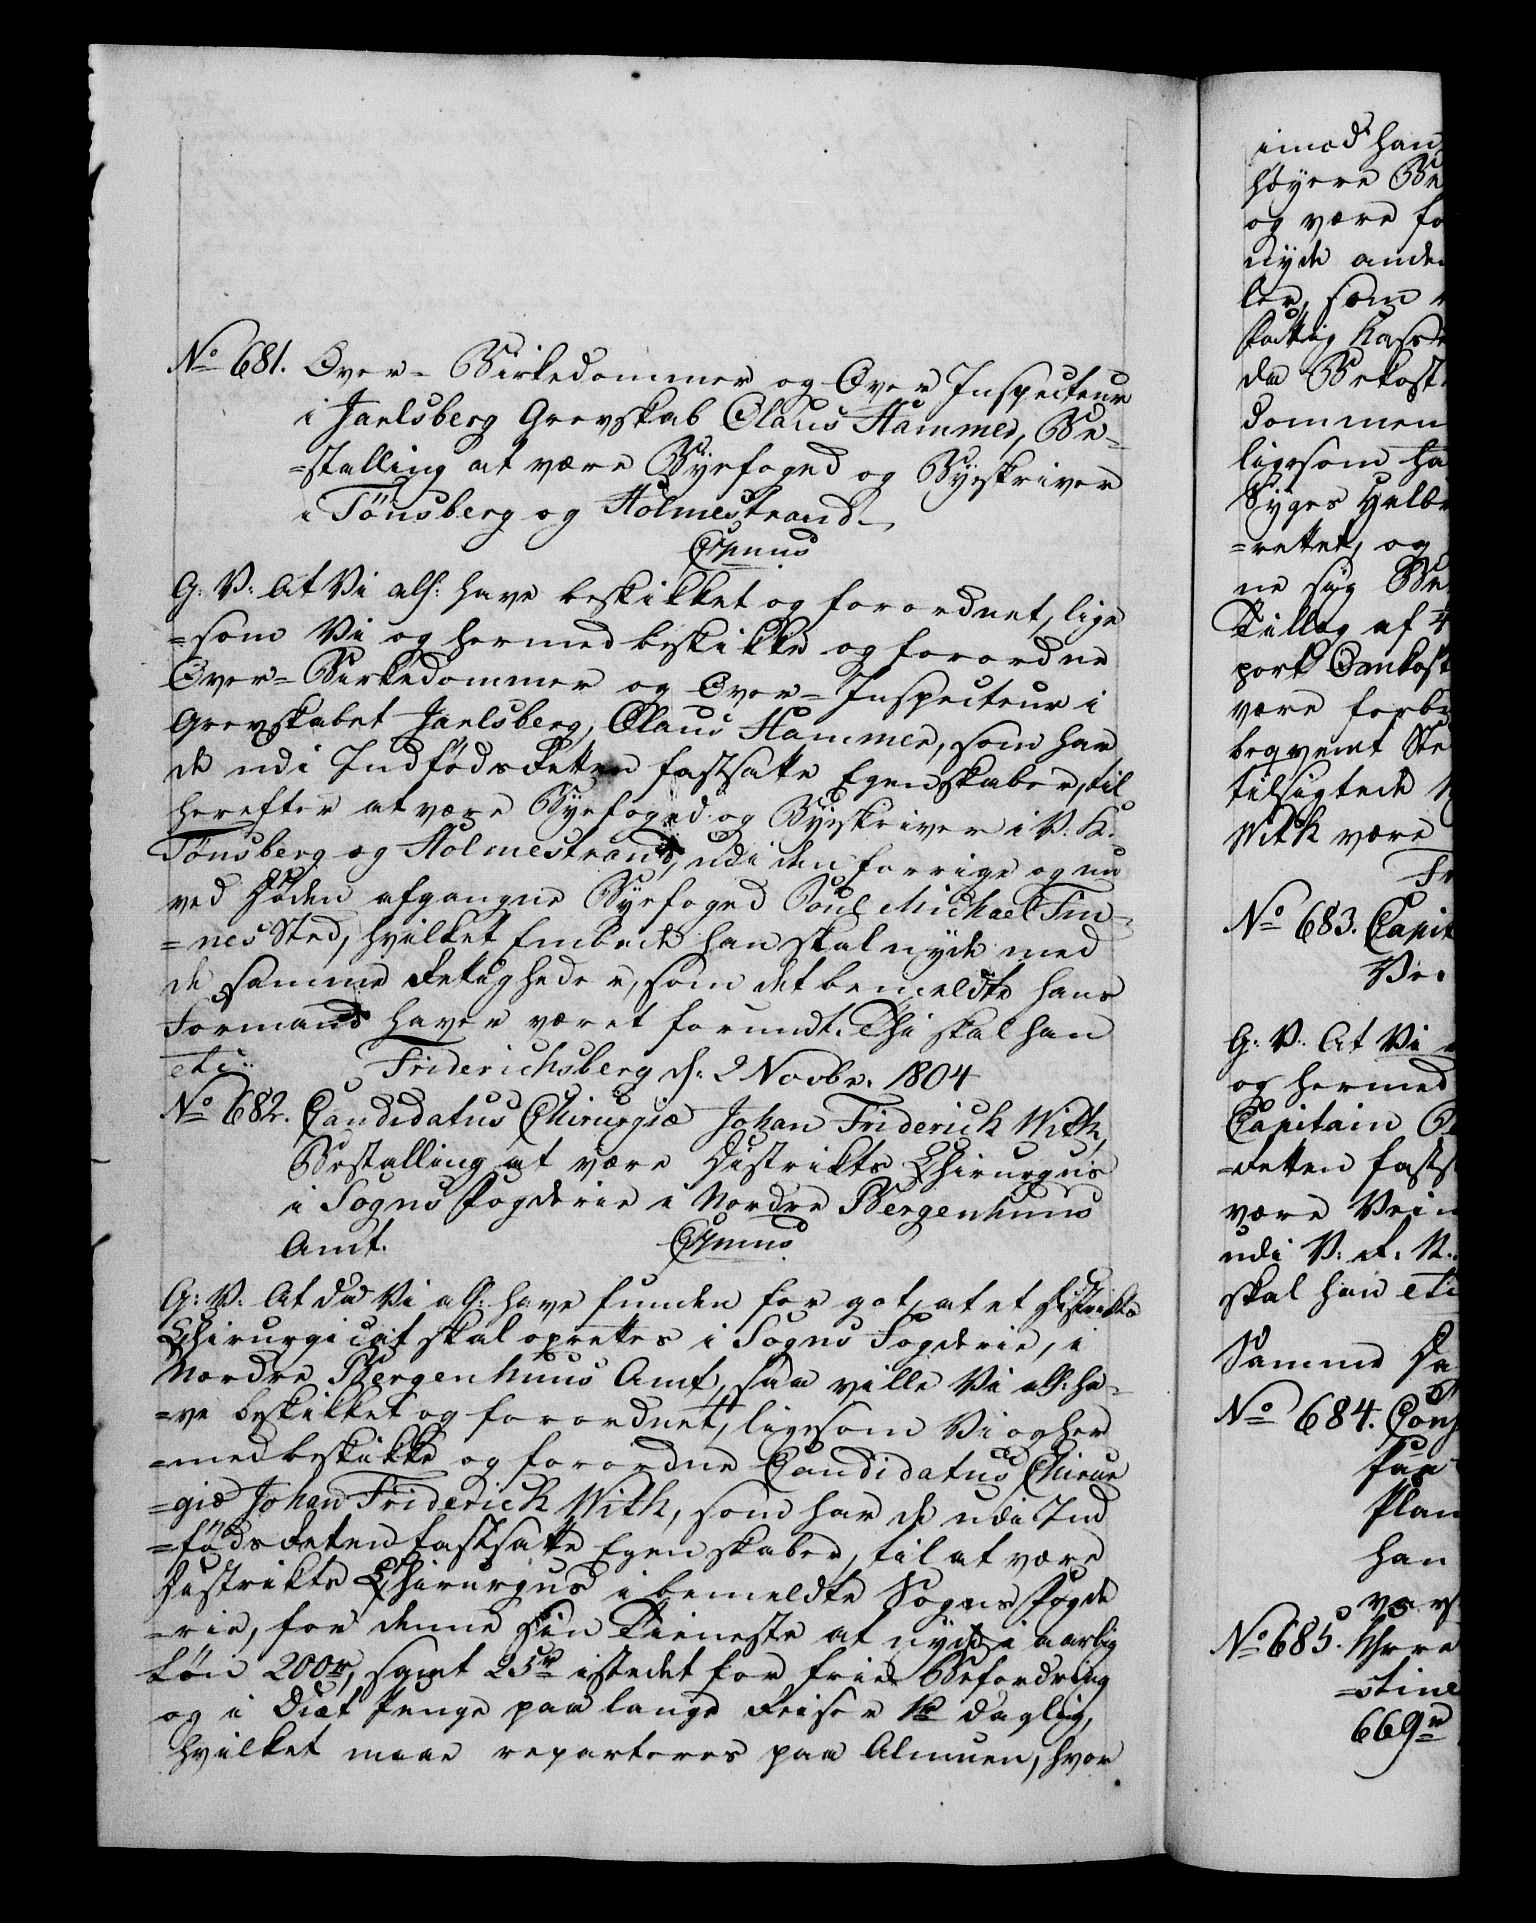 No 681. Over-Birkedommer og Over Inspecteur
i Jarlsberg Grevskab Claus Hammer, Be-
=stalling at være Byefoged og Byeskriver
i Tønsberg og Holmestrand.
Cpmus
G: V: At Vi allr: have beskikket og forordnet, lige
=som Vi og hermed beskikke og forordne
Over-Birkedommer og Over-Inspecteur i
Grevskabet Jarlsberg, Claus Hammer, som har
de udi Indføds Retten fastsatte Egenskaber, til
herefter at være Byefoged og Byeskriver i V. K.
Tønsberg og Holmestrand, udi den forrige og nu
ved Døden afgangne Byefoged Poul Michael Fin-
=nes Sted, hvilket Embede han skal nyde med
de samme Rettigheder, som det bemeldte hans
Formand haver været forundt. Thi skal han
etc: Friderichsberg d: 2 Novbr. 1804
No 682. Candidatus Chirurgiæ Johan Friderich With,
Bestalling at være Distrikts Chirurgus
i Sogns Fogderie i Nordre Bergenhuus
Amt. Cpmus
G: V: At da Vi allr: have funden for got, at et Distrikts
Chirurgicat skal oprettes i Sogns Fogderie, i
Nordre Bergenhuus Amt, saa ville Vi allr: ha-
=ve beskikket og forordnet, ligesom Vi og her
=med beskikke og forordne Candidatus Chirur
=giæ Johan Friderich With, som har de udi Ind
=føds Retten fastsatte Egenskaber, til at være
Distrikts Chirurgus i bemeldte Sogns Fogde
=rie, for denne sin Tieneste at nyde i aarlig
Løn 200r, samt 25r istedet for frie Befordring
og i Diæt Penge paa lange Reiser 1r daglig,
hvilket maae reparteres paa Almuen, hvor
imod han
høyere Be
og være fo
nyde anden
ler, som
fattig Casse
da Bekost
dommen
ligesom ha
Syges Helbr
=rettet, og
ne sig Be
Tillæg af 4
port Omkost
være forbu
beqvemt Ste
tilsigtede
With være
Fr
No 683. Capit
Vei
G: V: At Vi
og hermed
Capitain
=Retten fasts
være Vei
udi V: R: N.
skal han etc
Samme Da
No 684. Con
Paa
Plan
han
vars
No 685.
=stine
669r